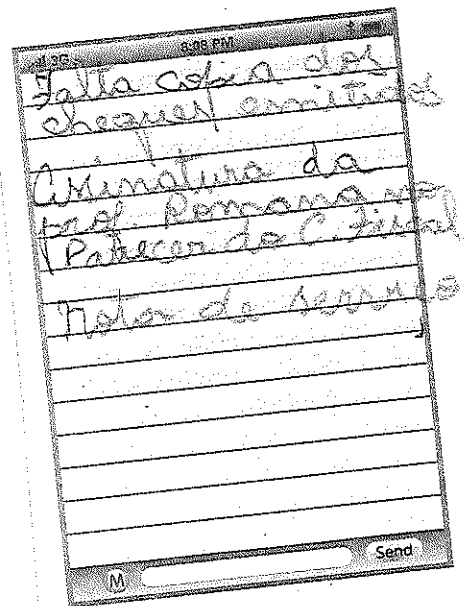 3G 8:08 PM
Falta copia dos
cheques emitidos
Assinatura da
prof Romana no
Parecer do C. Fiscal
Notas de serviço
M Send